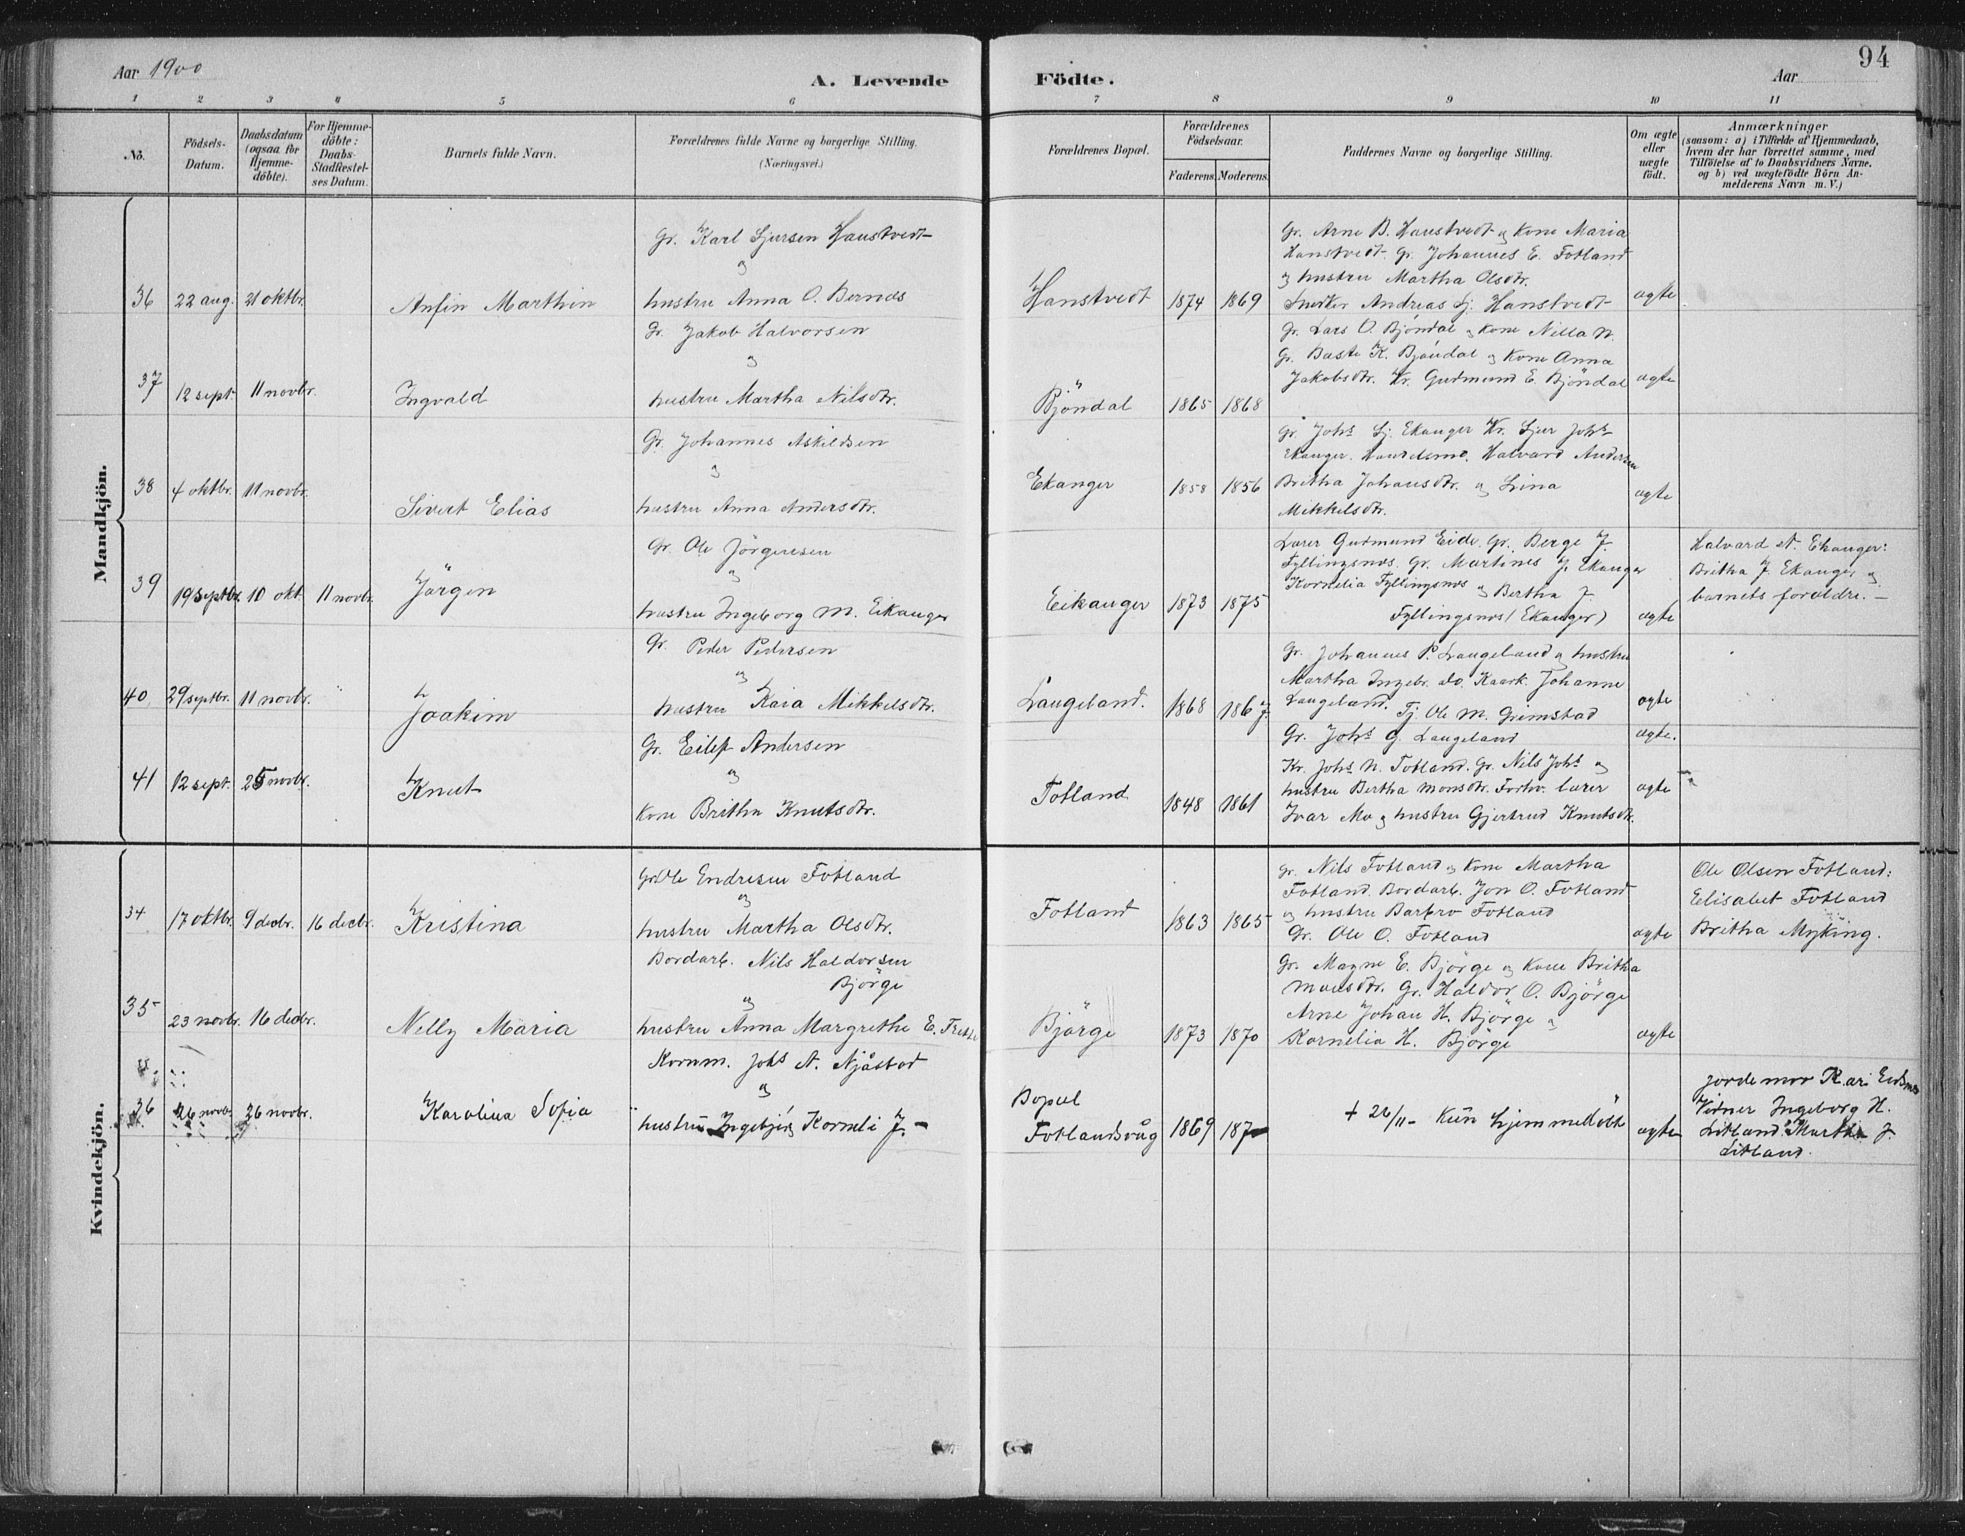 Aar 1900
A. Levende
Födte.
Aar
94
1 2 3 4 5 6 7 8 9 10 11
No.
Födsels-
Datum.
Daabsdatum
(ogsaa for
Hjemme-
döbte).
For Hjemme-
döbte:
Daabs-
Stadfæstel-
ses Datum.
Barnets fulde Navn.
Forældrenes fulde Navne og borgerlige Stilling.
(Næringsvei.)
Forældrenes Bopæl.
Forældrenes
Födselsaar.
Faderens. Moderens.
Faddernes Navne og borgerlige Stilling.
Om ægte
eller
uægte
födt.
Anmærkninger
(saasom: a) i Tilfælde af Hjemmedaab,
hvem der har forrettet samme, med
Tilföielse af to Daabsvidners Navne,
og b) ved uægtefödte Börn An-
melderens Navn m. V.)
Mandkjön.
Gr. Karl Sjursen Hanstvedt
og
36 22 aug. 21 oktbr. Anfin Marthin hustru Anna O. Bernæs
Hanstvedt 1874 1869
Gr. Arne B. Hanstvedt og Kone Maria
Hanstvedt. Gr. Johannes E. Fotland
og hustru Martha Olsdtr.
Snedker Andreas Sj. Hanstvedt
ægte
Gr. Jakob Halvorsen
og
37 12 sept. 11 novbr. Ingvald hustru Martha Nilsdtr.
Bjöndal 1865 1868
Gr. Lars O. Bjöndal og Kone Nilla N.
Gr. Baste K. Bjöndal og Kone Anna
Jakobsdtr. Kr. Gudmund E. Bjöndal
ægte
Gr. Johannes Askildsen
og
38 4 oktbr. 11 novbr. Sivert Elias hustru Anna Andersdtr.
Ekanger 1858 1856
Gr. Johs Sj. Ekanger Kr. Sjur Johs
Ekanger. Handelsmd. Halvard Andersen
Britha Johansdtr. og Lina
Mikkelsdtr.
ægte
Gr. Ole Jörgensen
og
39 19 septbr. 10 okt. 11 novbr. Jörgen hustru Ingeborg M. Eikanger
Eikanger 1873 1875
Lærer Gudmund Eide. Gr. Berge J.
Fyllingsnes. Gr. Martines J. Ekanger
Kornelia Fyllingsnes og Bertha J.
Fyllingsnes (Ekanger)
ægte
Halvard A. Ekanger:
Britha J. Ekanger og
barnets forældre. –
Gr. Peder Pedersen
og
40 29 septbr. 11 novbr. Joakim hustru Kaia Mikkelsdtr.
Langeland. 1868 1867
Gr. Johannes P. Langeland og hustru
Martha Ingebr. do. Kaark. Johanne
Langeland. Tj. Ole M. Grimstad
Gr. Johs G. Langeland
ægte
ægte.
Gr. Eilef Andersen
og
41 12 sept. 25 novbr. Knut Kone Britha Knutsdtr.
Totland 1848 1861
Kr. Johs N. Totland. Gr. Nils Johs og
hustru Bertha Monsdtr. Forhv. lærer
Ivar Mo og hustru Gjertrud Knutsdtr.
ægte
Kvindekjön.
Gr. Ole Endresen Fotland
og
34 17 oktbr. 9 decbr. 16 decbr. Kristina hustru Martha Olsdtr.
Fotland 1863 1865
Gr. Nils Fotland og Kone Martha
Fotland Bordarb. Jon O. Fotland
og hustru Barbro Fotland
Gr. Ole O. Fotland
ægte
Ole Olsen Fotland:
Elisabet Fotland
Britha Myking.
Bordarb. Nils Haldorsen
Bjørge
og
35 23 novbr. 16 decbr. Nelly Maria hustru Anna Margrethe E.
Bjørge 1873 1870
Gr. Magne E. Bjørge og Kone Britha
Monsdtr. Gr. Haldor O. Bjørge
Arne Johan H. Bjørge og
Kornelia H. Bjørge
ægte
Kornm. Johs A. Njåstad
og
36 26 novbr. 26 novbr. Karolina Sofia hustru Ingebjørg Korneli J. –
Bopæl
Fotlandsvåg 1869 187
+ 26/11 – Kun hjemmedöbt
ægte
Jordemor Kari Eidsnes
Vidner Ingeborg H.
Litland. Martha J.
Litland.